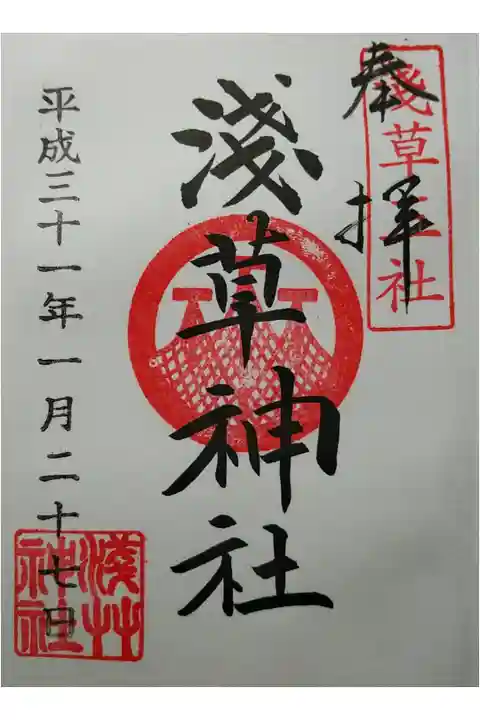 奉拝
淺草三社
淺草神社
平成三十一年一月二十七日
淺艸
神社